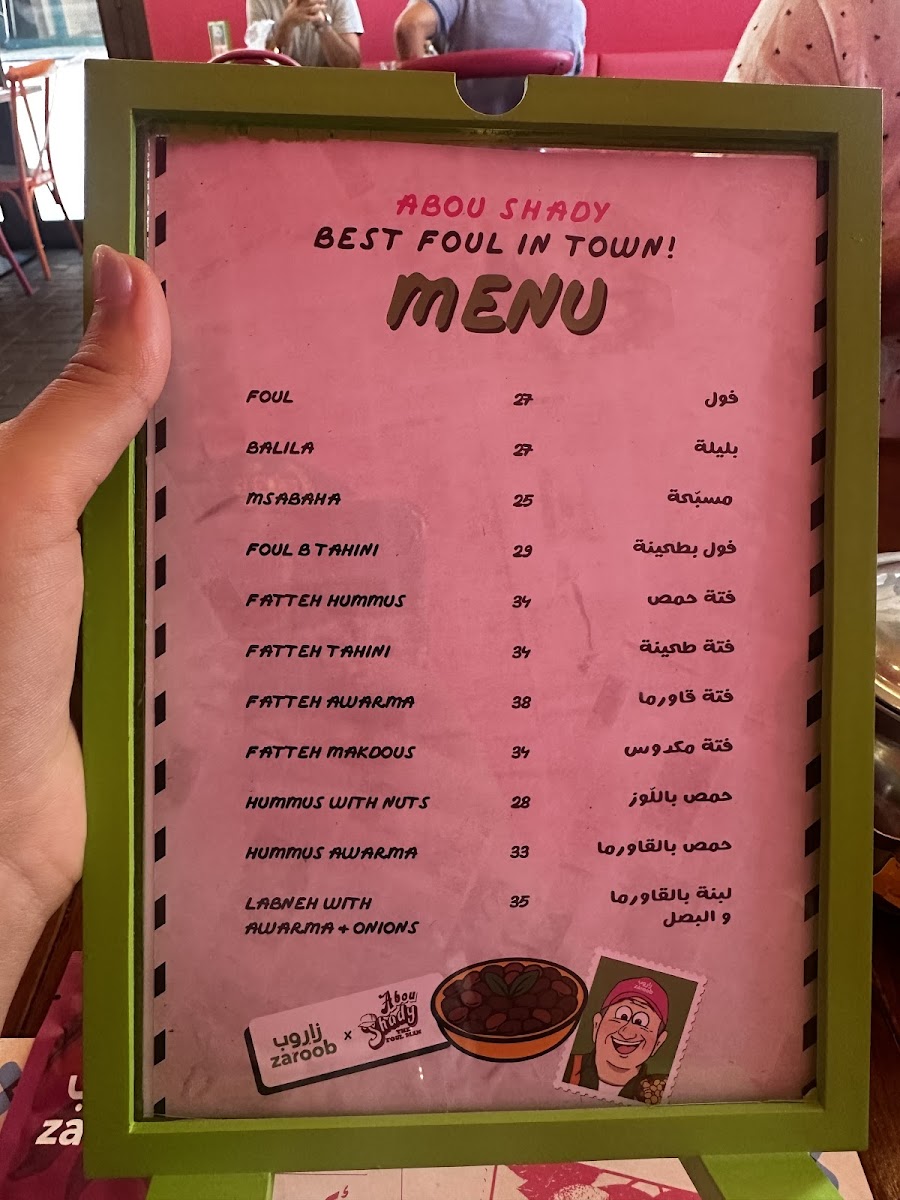 ABOU SHADY
BEST FOUL IN TOWN!
MENU
FOUL 27 فول
BALILA 27 بليلة
MSABAHA 25 مسبّحة
FOUL B TAHINI 29 فول بطحينة
FATTEH HUMMUS 34 فتة حمص
FATTEH TAHINI 34 فتة طحينة
FATTEH AWARMA 38 فتة قاورما
FATTEH MAKDOUS 34 فتة مكدوس
HUMMUS WITH NUTS 28 حمص باللّوز
HUMMUS AWARMA 33 حمص بالقاورما
LABNEH WITH 35 لبنة بالقاورما
AWARMA + ONIONS و البصل
زاروب
zaroob
x
Abou
Shady
THE
FOUL MAN
زاروب
zaroob
za